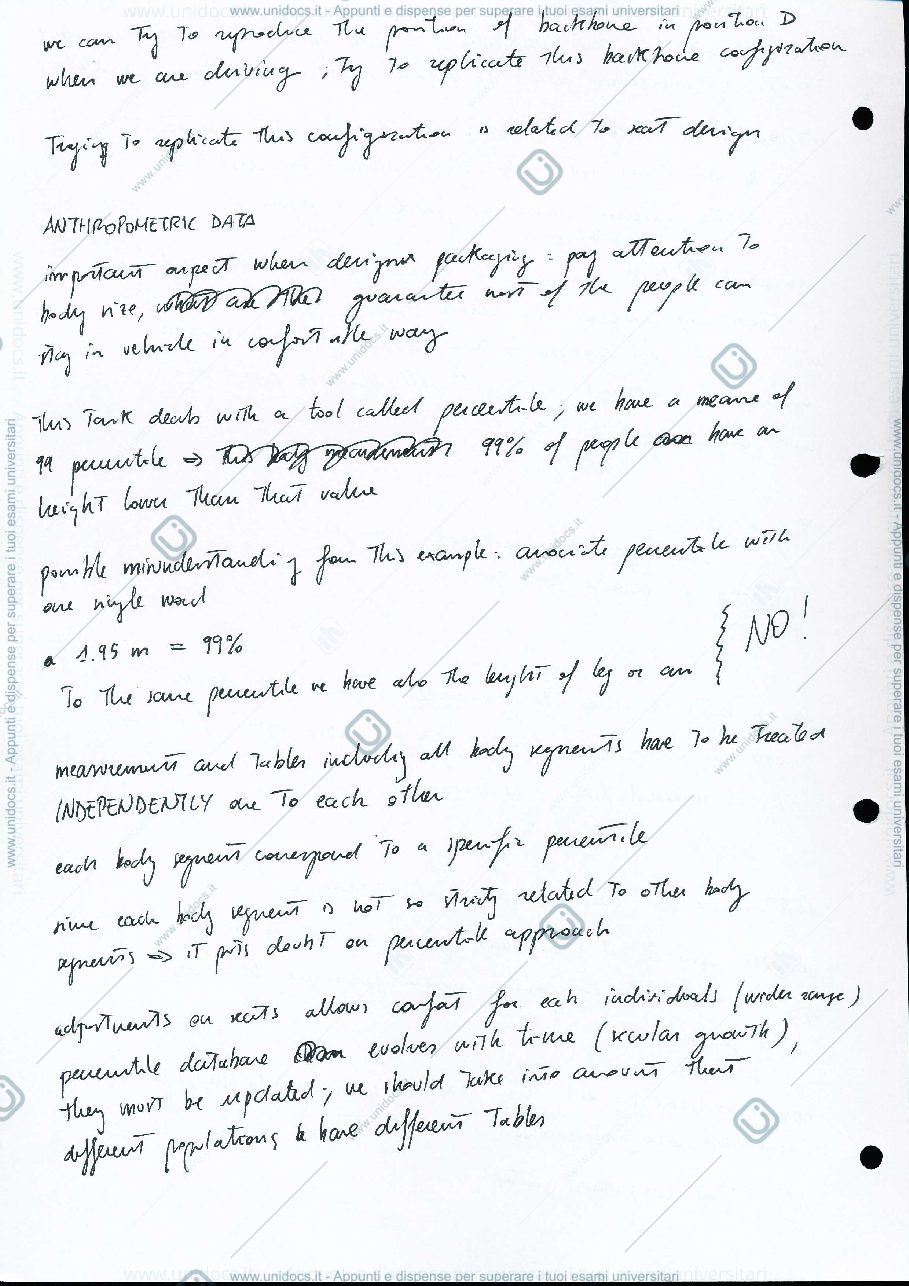 www.unidocs.it - Appunti e dispense per superare i tuoi esami universitari
we can try to reproduce the position of backbone in position D
when we are driving ; try to replicate this backbone configuration
Trying to replicate this configuration is related to seat design
ANTHROPOMETRIC DATA
important aspect when designing packaging : pay attention to
body size, guarantee most of the people can
stay in vehicle in confortable way
this task deals with a tool called percentile ; we have a measure of
99 percentile => 99% of people have an
height lower than that value
possible misunderstanding from this example : associate percentile with
one single word
a 1.95 m = 99%
To the same percentile we have also the lenght of leg or arm } NO!
measurements and tables including all body segments have to be treated
INDEPENDENTLY one to each other
each body segment correspond to a specific percentile
since each body segment is not so strictly related to other body
segments => it puts doubt on percentile approach
adjustments on seats allows confort for each individuals (wider range)
percentile database evolves with time (secular growth),
they must be updated ; we should take into amount that
different populations have different tables
www.unidocs.it - Appunti e dispense per superare i tuoi esami universitari